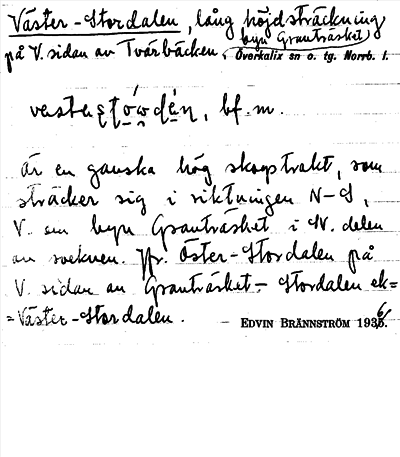 Väster-Stordalen, lång höjdsträckning
på V. sidan av Tvärbäcken, byn Granträsket,
Överkalix sn o. tg. Norrb. l.
bf. m.
är en ganska hög skogstrakt, som
sträcker sig i riktningen N-S,
V. om byn Granträsket i N. delen
av socknen. Jfr. Öster-Stordalen på
V. sidan av Granträsket. – Stordalen ek=
=Väster-Stordalen.
– EDVIN BRÄNNSTRÖM 1936.